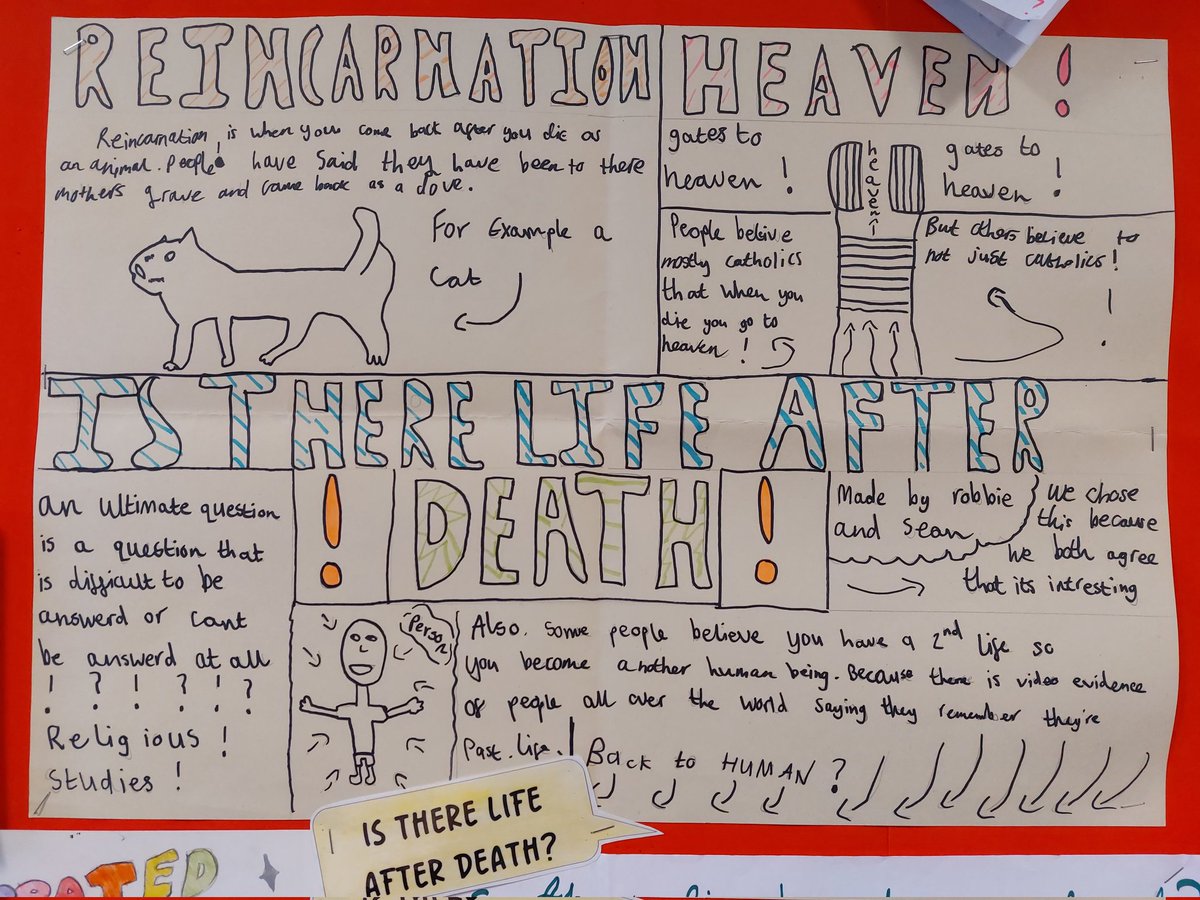 REINCARNATION
Reincarnation is when you come back after you die as
an animal. People have said they have been to there
mothers grave and came back as a dove.
For Example a
cat
HEAVEN !
gates to
heaven !
heaven
gates to
heaven !
People belive
mostly catholics
that when you
die you go to
heaven !
But others believe to
not just catholics !
!
IS THERE LIFE AFTER
! DEATH !
An ultimate question
is a question that
is difficult to be
answerd or cant
be answerd at all
! ? ! ? ! ?
Religious !
Studies !
Made by robbie
and Sean
We chose
this because
we both agree
that its intresting
Person
Also. Some people believe you have a 2nd life so
you become another human being. Because there is video evidence
of people all over the world saying they remember they're
Past. life. !
Back to HUMAN ?
IS THERE LIFE
AFTER DEATH?